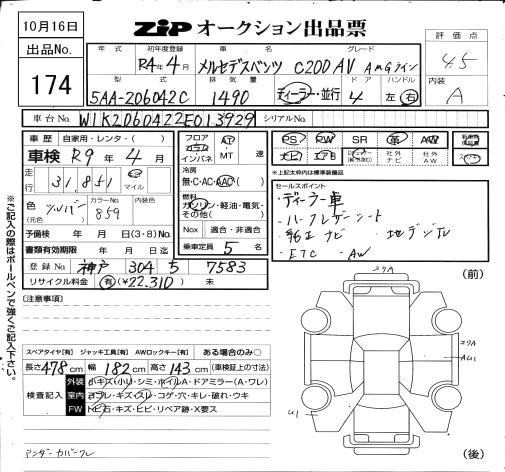 10月16日
ZIP オークション出品票
出品No.
174
年式
初年度登録
R4年4月
車名
メルセデスベンツ
グレード
C200 AV AMGライン
評価点
4.5
型式
5AA-206042C
排気量
1490
ディーラー・並行
ドア
4
ハンドル
左 右
内装
A
車台No.
W1K2060422F013929
シリアルNo.
車歴 自家用・レンタ・( )
車検 R9年4月
走行
31,851
マイル
色
(元色)
シルバー
カラーNo.
859
内装色
予備検 年 月 日(3・8)No.
書類有効期限 年 月 日迄
登録No.
神戸 304 ち 7583
リサイクル料金 (有)(¥22,310 ) 未
フロア
コラム
インパネ
AT
MT
速
冷房
無・C・AC・AAC
燃料
ガソリン・軽油・電気・
その他( )
Nox 適合・非適合
乗車定員 5 名
PS PW SR 革 AW
ナビ エアB
社外
ナビ
社外
AW
※上記太枠内は標準装備品
セールスポイント
・ディーラー車
・ハーフレザーシート
・純正ナビ ・地デジTV
・ETC ・AW
(注意事項)
スペアタイヤ[有] ジャッキ工具[有] AWロックキー[有] ある場合のみ○
長さ478cm 幅182cm 高さ143cm (車検証上の寸法)
検査記入
外装 小キズ・小U・シミ・ホイルA・ドアミラー(A・ワレ)
室内 ヨゴレ・キズ・スレ・コゲ・穴・キレ・破れ・ウキ
FW トビ石・キズ・ヒビ・リペア跡・X要ス
アンダーカバーワレ
※ご記入の際はボールペンで強くご記入下さい。
(前)
(後)
A U1
U1